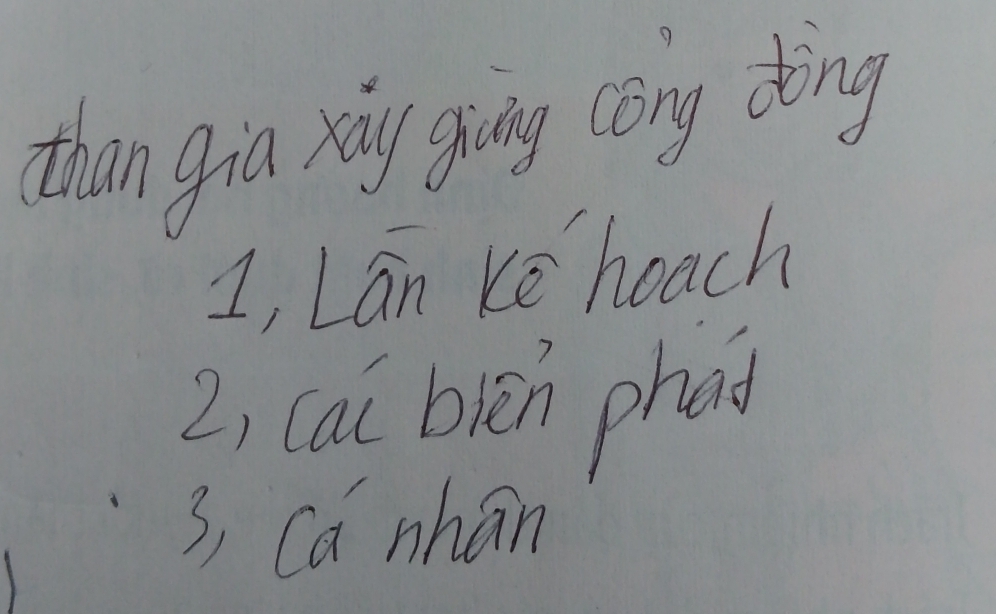 than gia xảy giừng cổng đồng
1, Lân kế hoach
2, các biển phát
3, cá nhân